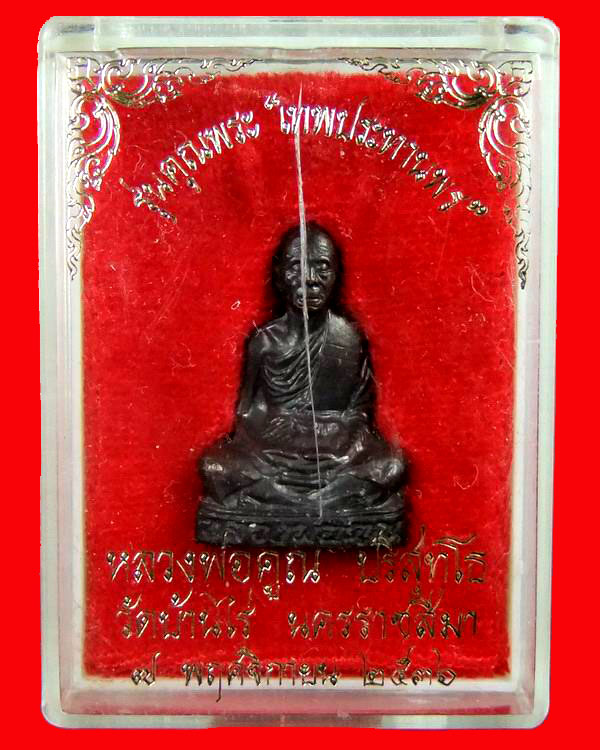 รุ่นคุณพระ "เทพประทานพร"
หลวงพ่อคูณ
หลวงพ่อคูณ ปริสุทโธ
วัดบ้านไร่ นครราชสีมา
๗ พฤศจิกายน ๒๕๓๖